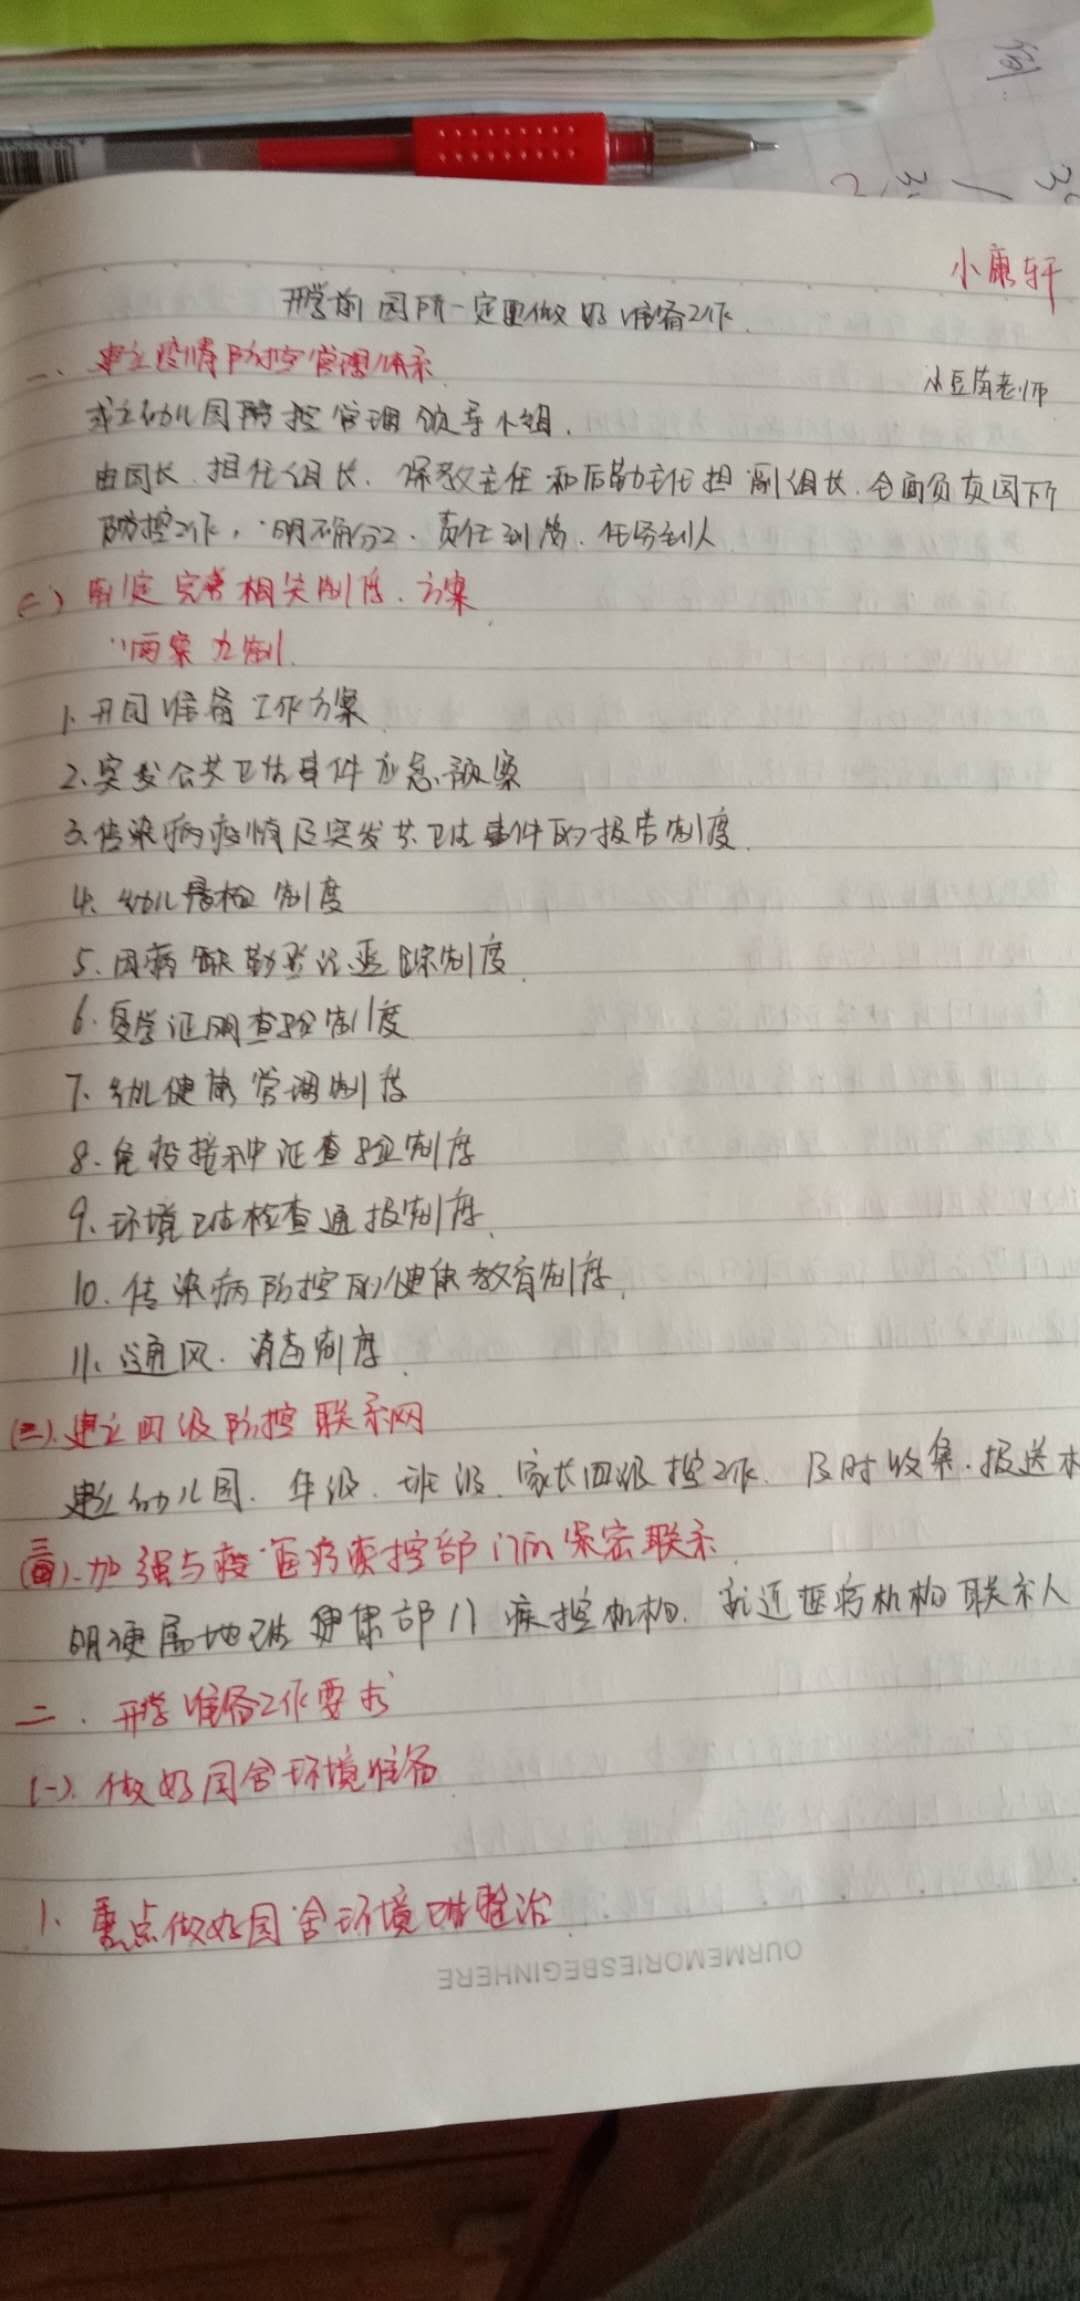 小康轩
开学前园所一定要做好准备工作.
小豆苗老师
一、建立疫情防控管理体系
成立幼儿园防控管理领导小组.
由园长.担任组长.保教主任和后勤主任担副组长.全面负责园所
防控工作,明确分工.责任到岗.任务到人
(二)制定完善相关制度.方案
"两案九制
1、开园准备工作方案
2、突发公共卫生事件应急预案
3.传染病疫情及突发共卫生事件的报告制度.
4、幼儿晨检制度
5.因病缺勤登记追踪制度
6.复学证明查验制度
7、幼儿健康管理制度
8、免疫接种证查验制度
9、环境卫生检查通报制度
10.传染病防控的健康教育制度.
11、通风.消毒制度
(三).建立四级防控联系网
建立幼儿园.年级.班级.家长四级控工作.及时收集.报送
加强与 医疗疾控部门的紧密联系
明确属地卫生健康部门疾控机构.就近医疗机构联系人
二.开学准备工作要求
(一).做好园舍环境准备
1、重点做好园舍环境卫生整治
OURMEMORIESBEGINHERE